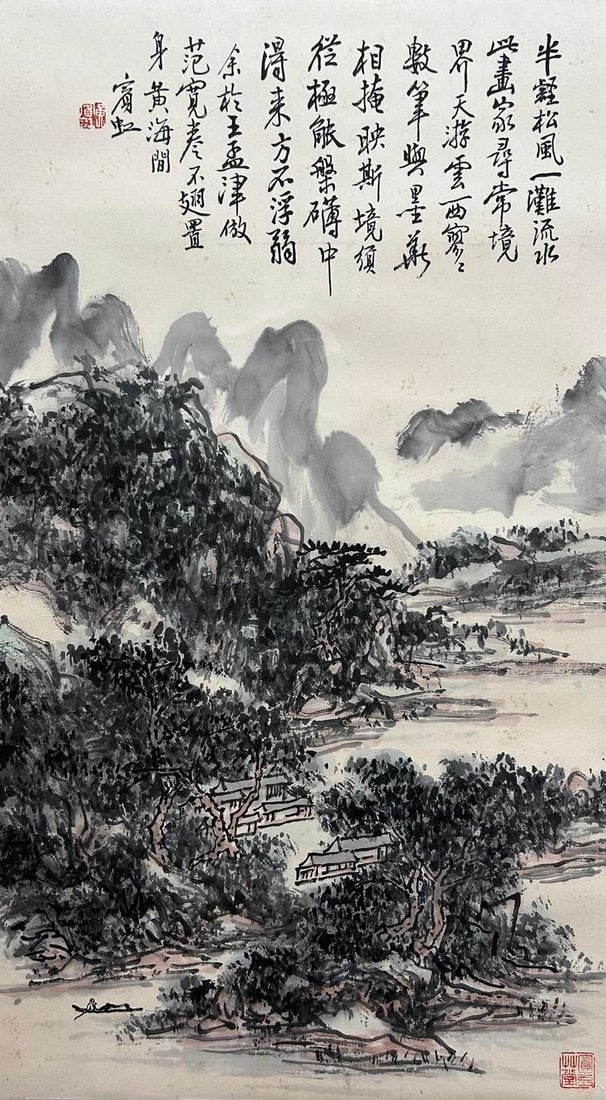 半壑松風一灘流水
此畫家尋常境
界天游雲西寥〻
數筆與墨華
相掩映斯境須
從極能槃礴中
得来方不浮弱
余於王孟津倣
范寬卷不翅置
身黃海間
賓虹